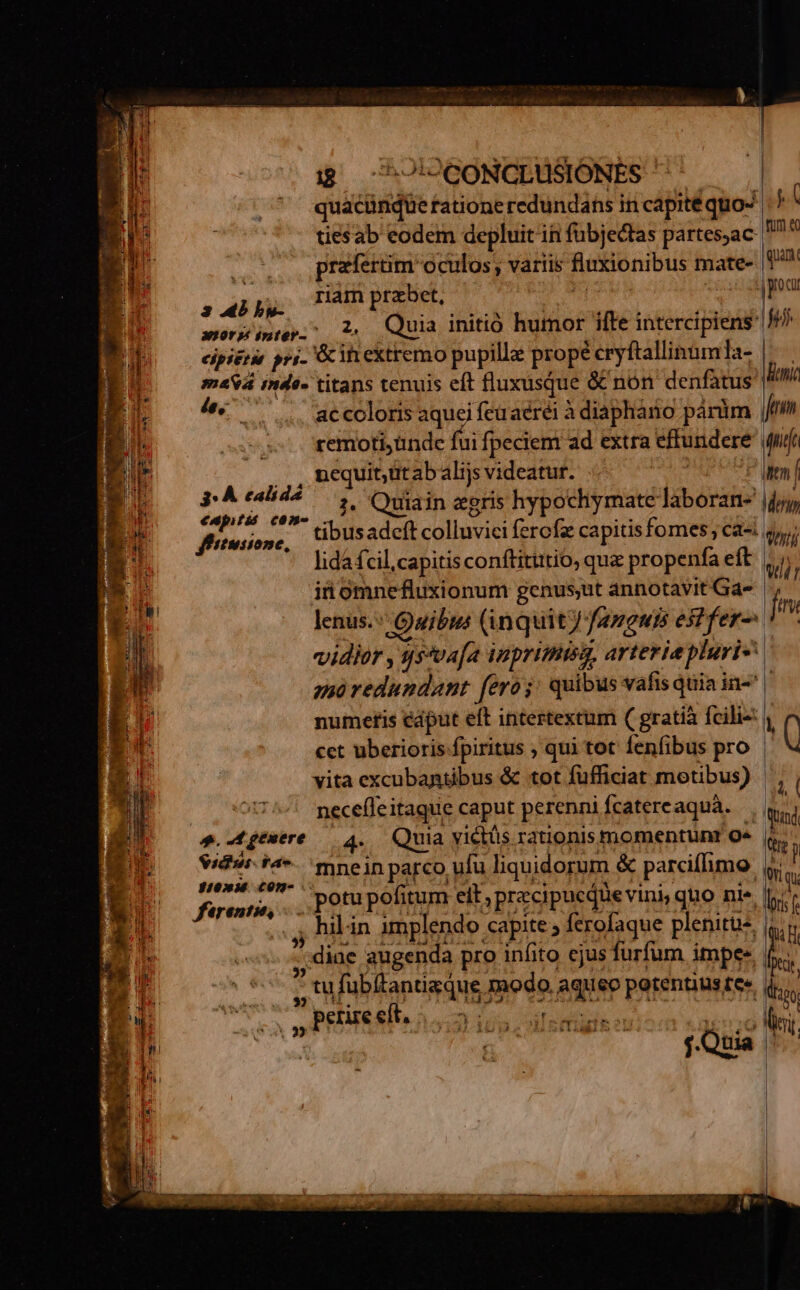 18 CONCLUSIONES
quacúnque ratione redundans in capite quo-
ties ab eodem depluit in ſubjectas partes, ac
præſertim oculos, variis fluxionibus mate-
riam præbet,
2 Ab hu-
moris inter-
cipiētis pri-
mævâ inde-
le,
2. Quia initiò humor iſte intercipiens
& in extremo pupillæ propè cryſtallinum la-
titans tenuis eſt fluxusque & non denſatus
ac coloris aquei ſeu aëréi à diaphano parùm
remoti, unde ſui ſpeciem ad extra effundere
nequit, ut ab alijs videatur.
3. A calidâ
capitis con-
ſtitutione,
3. Quia in ægris hypochymate laboran-
tibus adeſt colluviei ſeroſæ capitis fomes, ca-
lida ſcil, capitis conſtitutio, quæ propenſa eſt
in omne fluxionum genus, ut annotavit Ga-
lenus. Quibus (inquit) ſanguis est fer-
vidior, ijs vaſa inprimisq, arteriæ pluri-
mò redundant ſero; quibus vaſis quia in-
numeris caput eſt intertextum (gratiâ ſcili-
cet uberioris ſpiritus, qui tot ſenſibus pro
vita excubantibus & tot ſufficiat motibus)
neceſſe itaque caput perenni ſcatere aquâ.
4. A genere
victûs ra-
tionis con-
ferentis,
4. Quia victûs rationis momentum o-
mne in parco uſu liquidorum & parciſſimo
potu poſitum eſt, præcipuequè vini, quo ni-
hil in implendo capite, ſeroſaque plenitu-
„ dine augenda pro inſito ejus furſum impe-
„ tu ſubſtantiæque modo aqueo potentius re-
„ perire eſt.
5. Quia